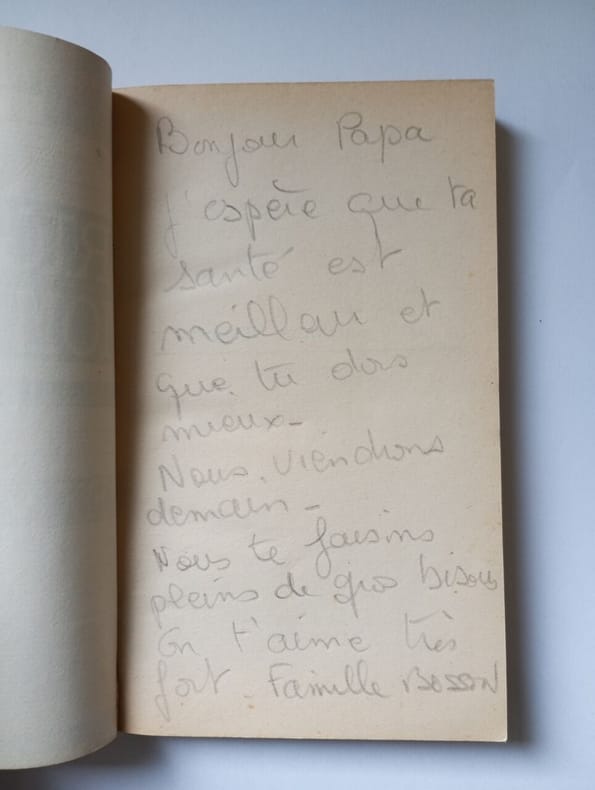 Bonjour Papa
j'espère que ta
santé est
meilleur et
que tu dors
mieux-
Nous viendrons
demain-
Nous te faisons
pleins de gros bisous
On t'aime très
fort. Famille BOSSON